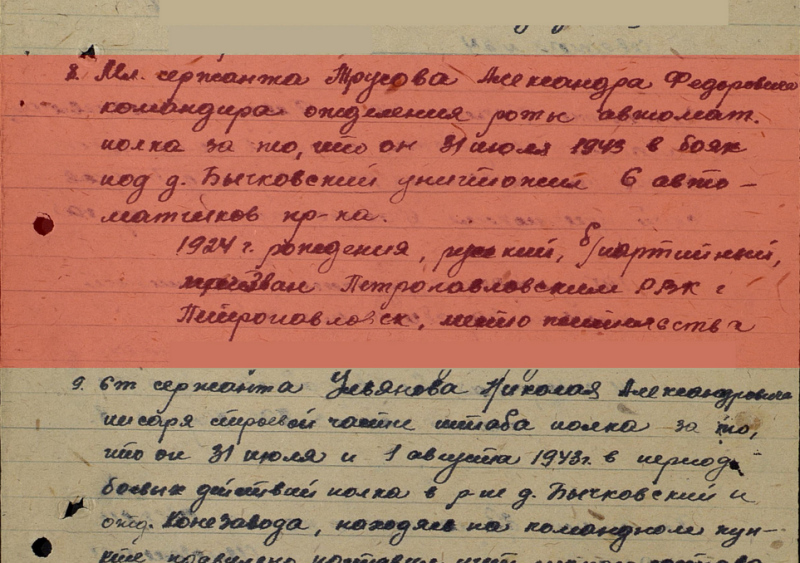 8. Мл. сержанта Трусова Александра Федоровича
командира отделения роты автомат.
полка за то, что он 31 июля 1943 в боях
под д. Бычковский уничтожил 6 авто-
матчиков пр-ка.
1924 г. рождения, русский, б/партийный,
призван Петропавловским РВК г
Петропавловск, место жительства
9. Ст сержанта Ульянова Николая Александровича
писаря строевой части штаба полка за то,
что он 31 июля и 1 августа 1943г. в период
боевых действий полка в р-не д. Бычковский и
отд. Конезавода, находясь на командном пун-
кте